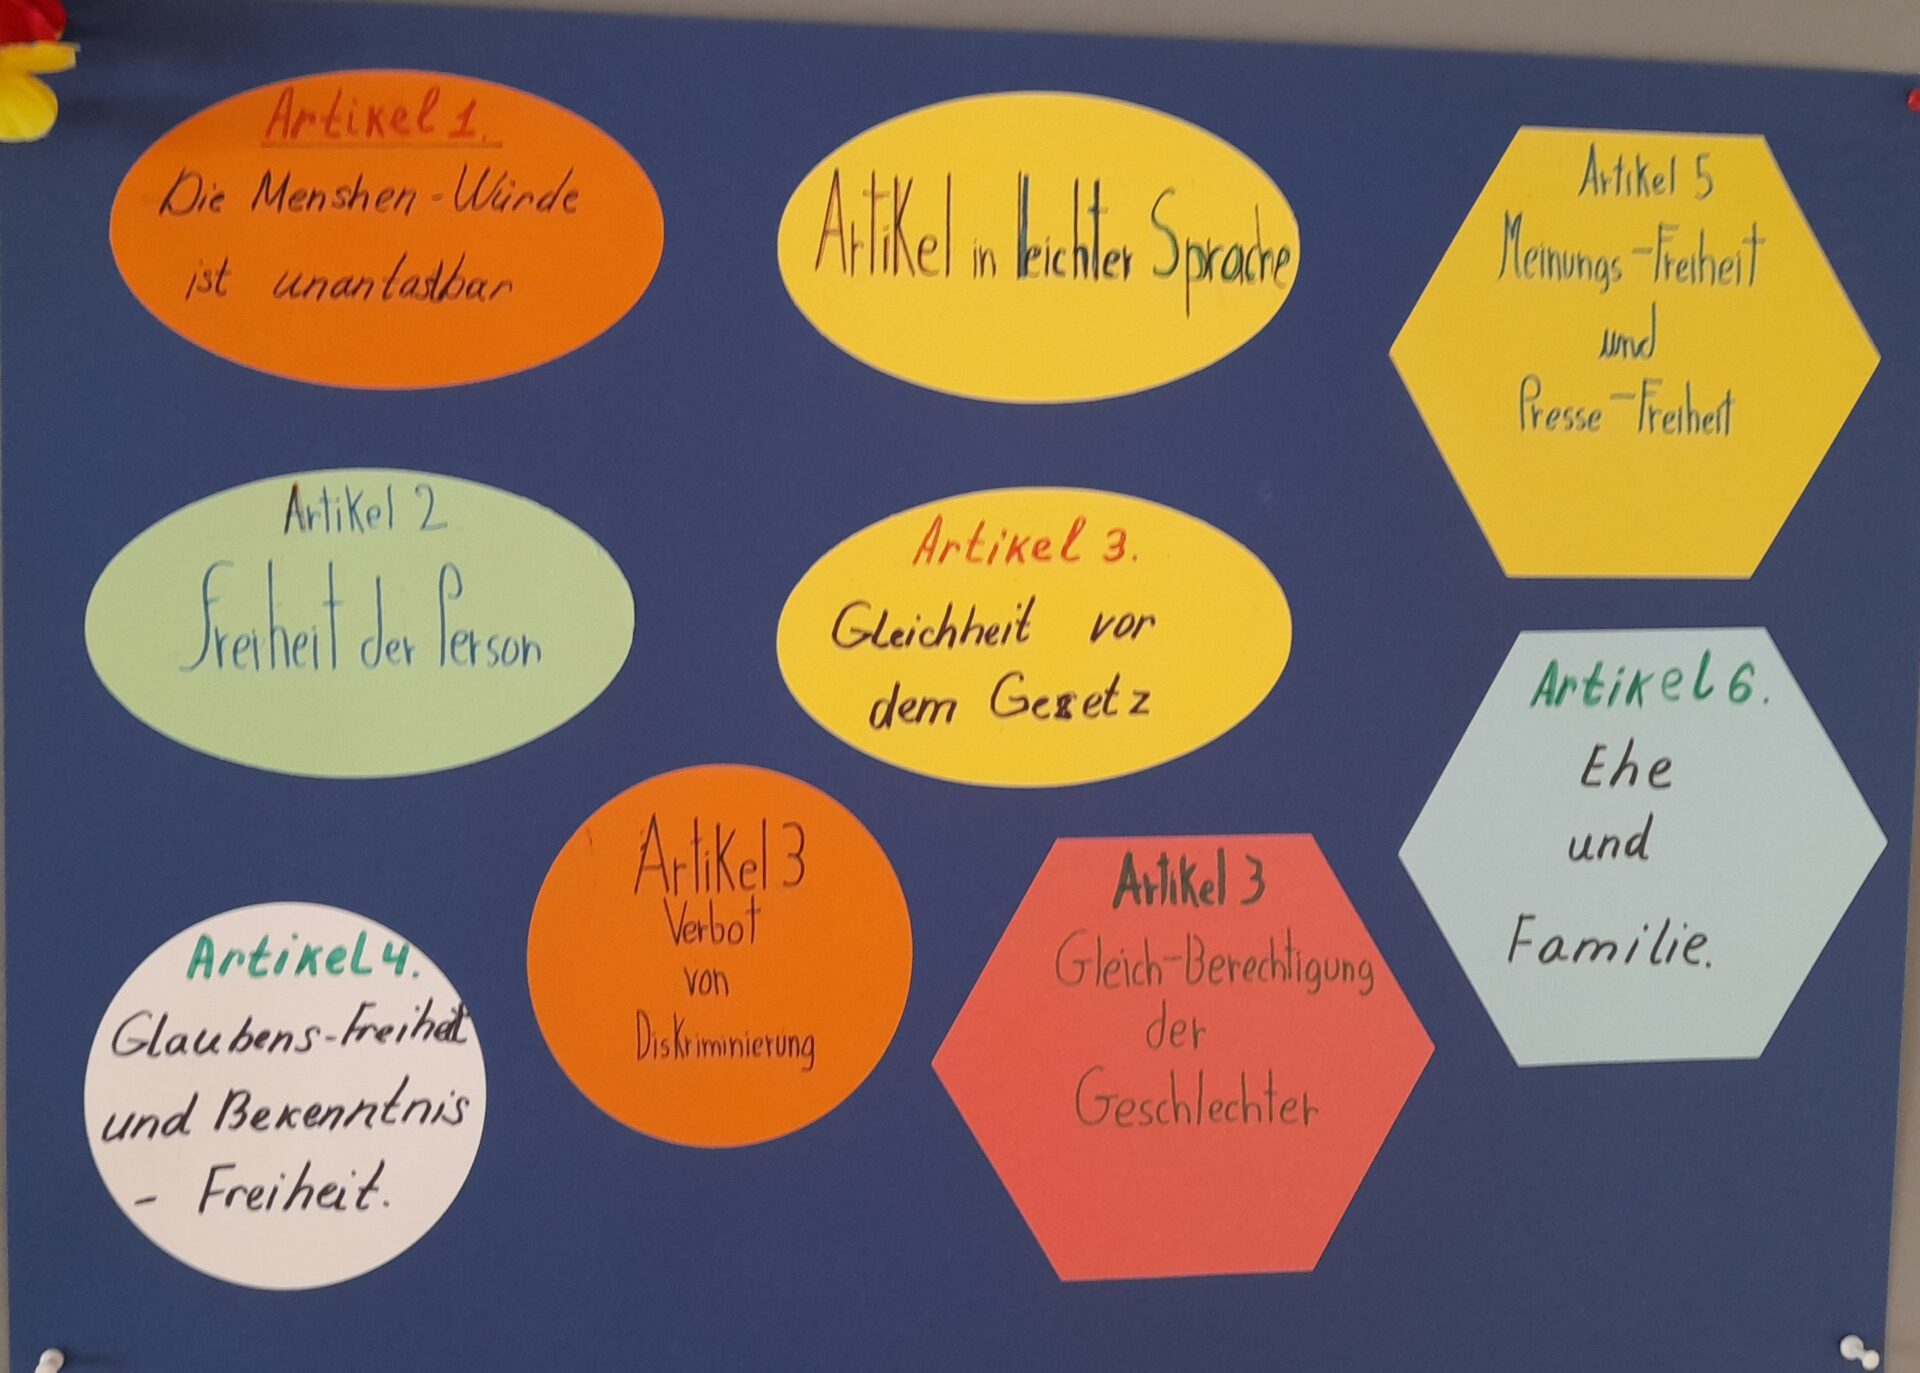 Artikel 1.
Die Menshen-Würde
ist unantastbar
Artikel in leichter Sprache
Artikel 5
Meinungs-Freiheit
und
Presse-Freiheit
Artikel 2
Freiheit der Person
Artikel 3.
Gleichheit vor
dem Gesetz
Artikel 6.
Ehe
und
Familie.
Artikel 3
Verbot
von
Diskriminierung
Artikel 3
Gleich-Berechtigung
der
Geschlechter
Artikel 4.
Glaubens-Freiheit
und Bekenntnis
- Freiheit.